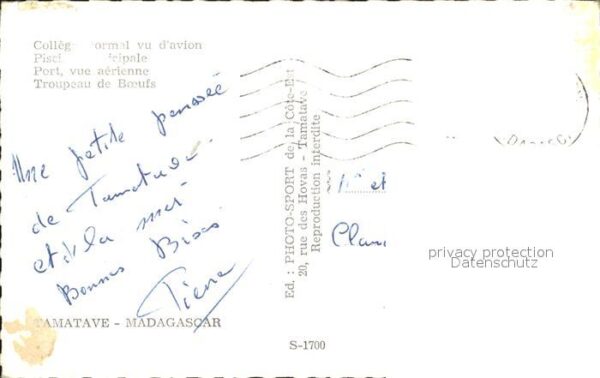 Collèg ormal vu d'avion
Pisci cipale
Port, vue aérienne
Troupeau de Bœufs
Une petite pensée
de Tamatave
et de la mer
Bonnes Bises
Pierre
TAMATAVE - MADAGASCAR
Ed. : PHOTO-SPORT de la Côte-Est
20, rue des Hovas - Tamatave
Reproduction interdite
et
S-1700
privacy protection
Datenschutz